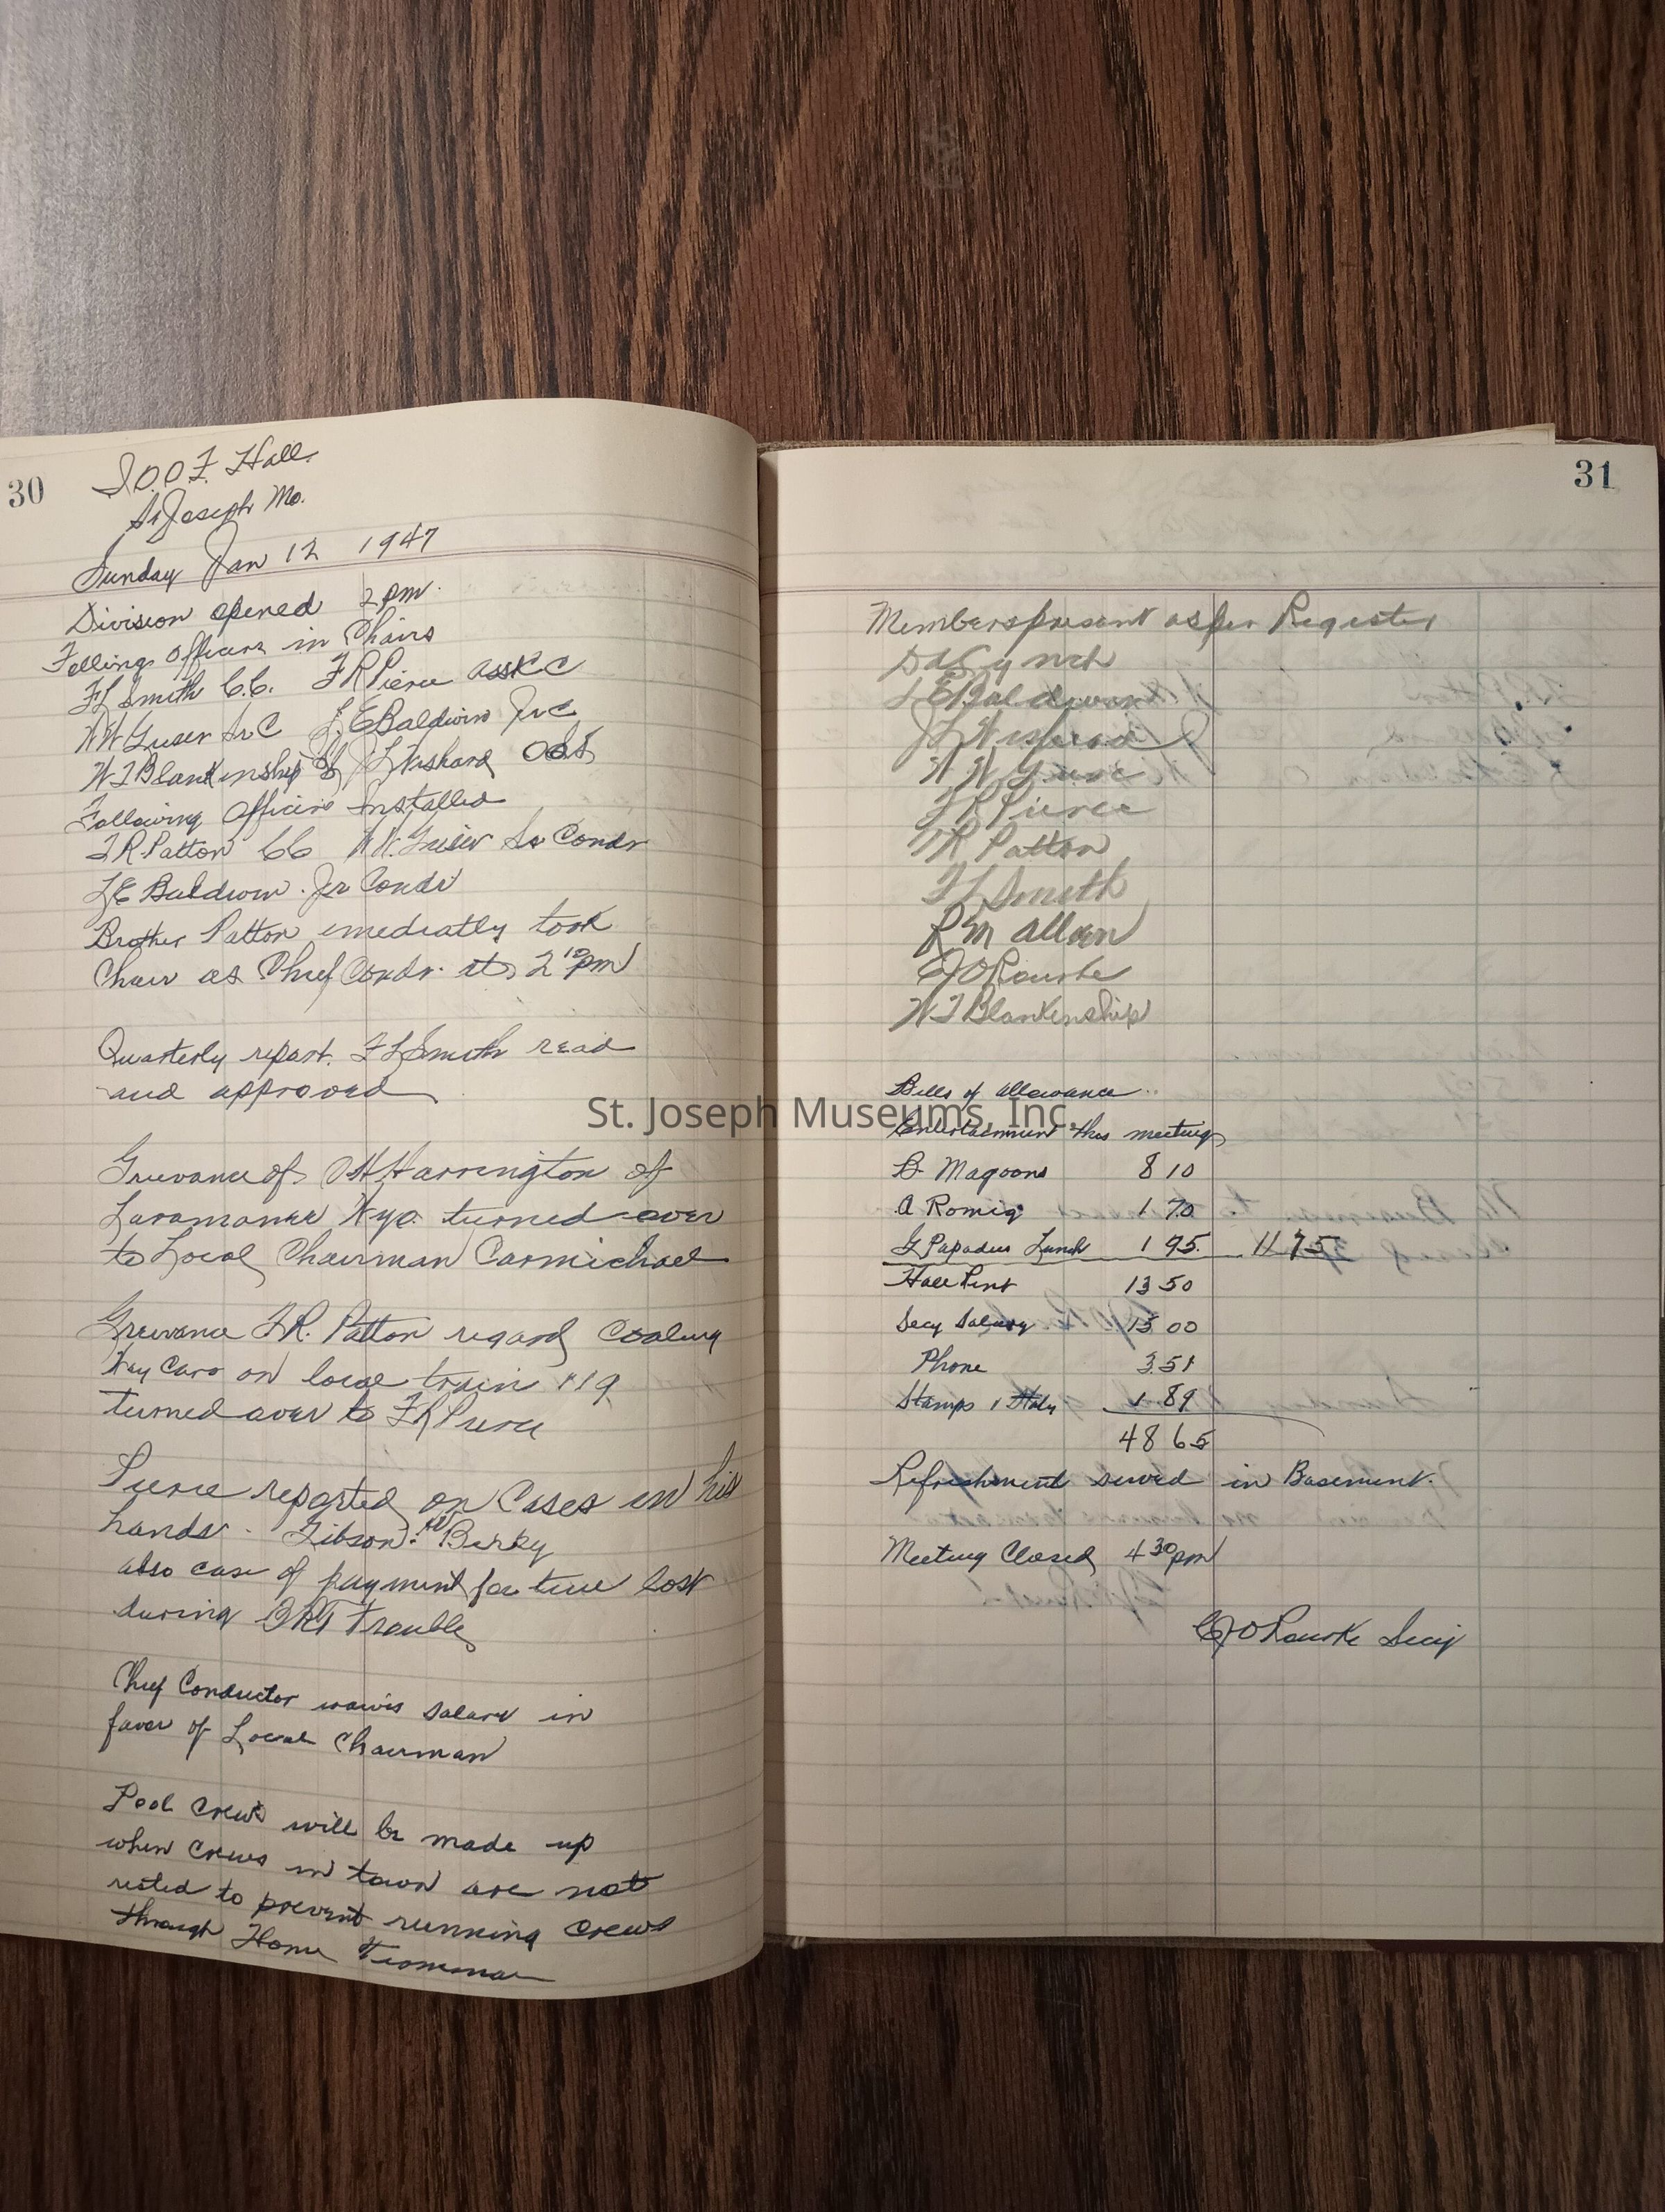 30
I.O.O.F. Hall.
St Joseph Mo.
Sunday Jan 12 1947
Division opened 2 pm.
Folling officers in Chairs
F L Smith C.C. F R Pierce asst C C
W W Guser Sr C L E Baldwin Jr C
W T Blankinship J L Wishard O&S
Following Officers Installed
T R. Patton CC W W. Guser Sr Condr
L E Baldwin. Jr Condr
Brother Patton emediatly took
Chair as Chief Condr. at 2 10 pm
Quarterly report. F L Smith read
and approved
Grievance of Harrington of
Wyo. turned over
to Local Chairman Carmichael
Grievance T R. Patton regard Coaling
Way Cars on local train 119
turned over to F R Pierce
Pierce reported on Cases in his
hands. Gibson.
also case of payment for time lost
during BRT Trouble
Chief Conductor waivs salary in
favor of Local Chairman
Pool Crews will be made up
when Crews in town are not
rested to prevent running Crews
through Home
31
Members present as per Register
D A Lynch
L E Baldwin
J L Wishard
W W Guse
F R Pierce
T R Patton
F L Smith
R M Allen
C J O Rourke
W T Blankenship
Bills of allowance
St. Joseph Museums, Inc.
Entertainment this meeting
B Magoons 8 10
A Romig 1 70
G Papadus Lunch 1 95. 11 75
Hall Rent 13 50
Secy Salary 15 00
Phone 3.51
Stamps 1.89
48 65
Refreshment served in Basement.
Meeting Closed 4 30 pm
C J O Rourke Secy